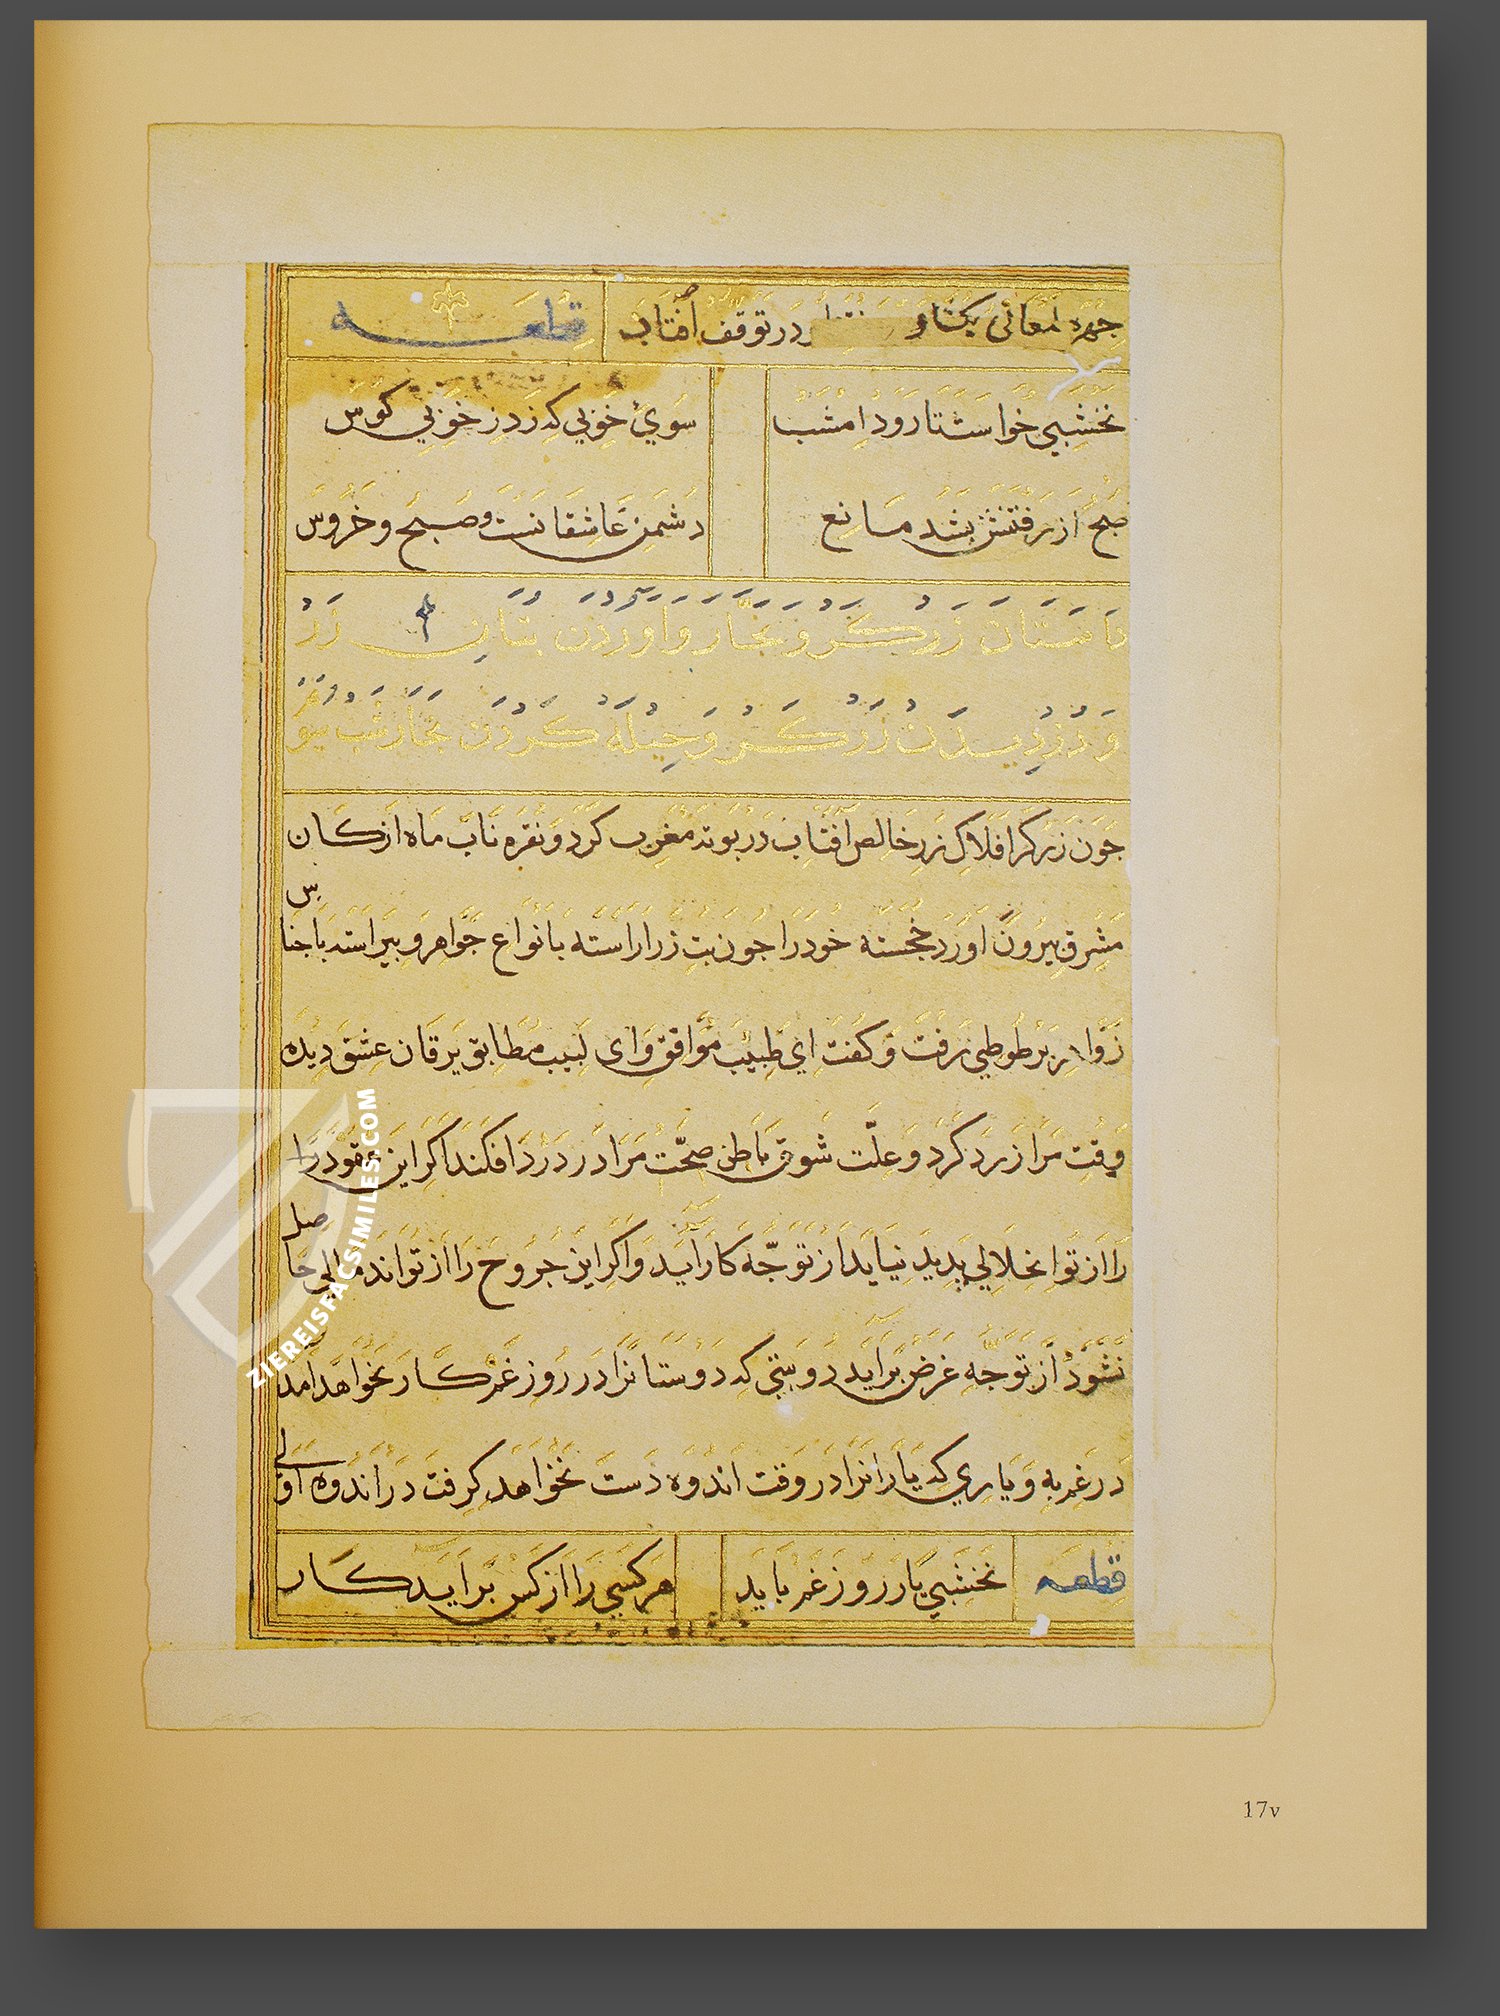 چهره لمعانی بکشاد در توقف افتاد قطعه
نخشبی خواست تا رود امشب سوی خوبی که زد ز خوبی کوس
صبح از رفتنش بشد مانع دشمن عاشقانست و صبح و خروس
داستان زرکر و نجار وآوردن بتان زر
و دزدیدن زرکر و حیله کردن نجار شب
جون زرکر افلاک زر خالص آفتاب در بوته مغرب کرد و نقره ناب ماه از کان
مشرق بیرون اورد خجسته خود را جون بت زر اراسته بانواع جواهر و بیراسته باجناس
زواهر بر طوطی رفت و کفت ای طبیب موافق و ای لبیب مطابق یرقان عشق دیده
وقت مرا زرد کرد و علت شوق باطن صحت مرا در درد افکند اکر این را
را از تو انحلالی پدید نیاید از توجه کار آید و اکر این جروح را از تو اندمالی حاصل
نشود از توجه غرض براید دوستی که دوستانرا در روز غم کار نخواهد امد
در غم به و یاری که یارانرا در وقت اندوه دست نخواهد کرفت در اندوه اولی
قطعه نخشبی یار روز غم باید هر کسی را از کس براید کار
17v
ZIEREISFACSIMILES.COM